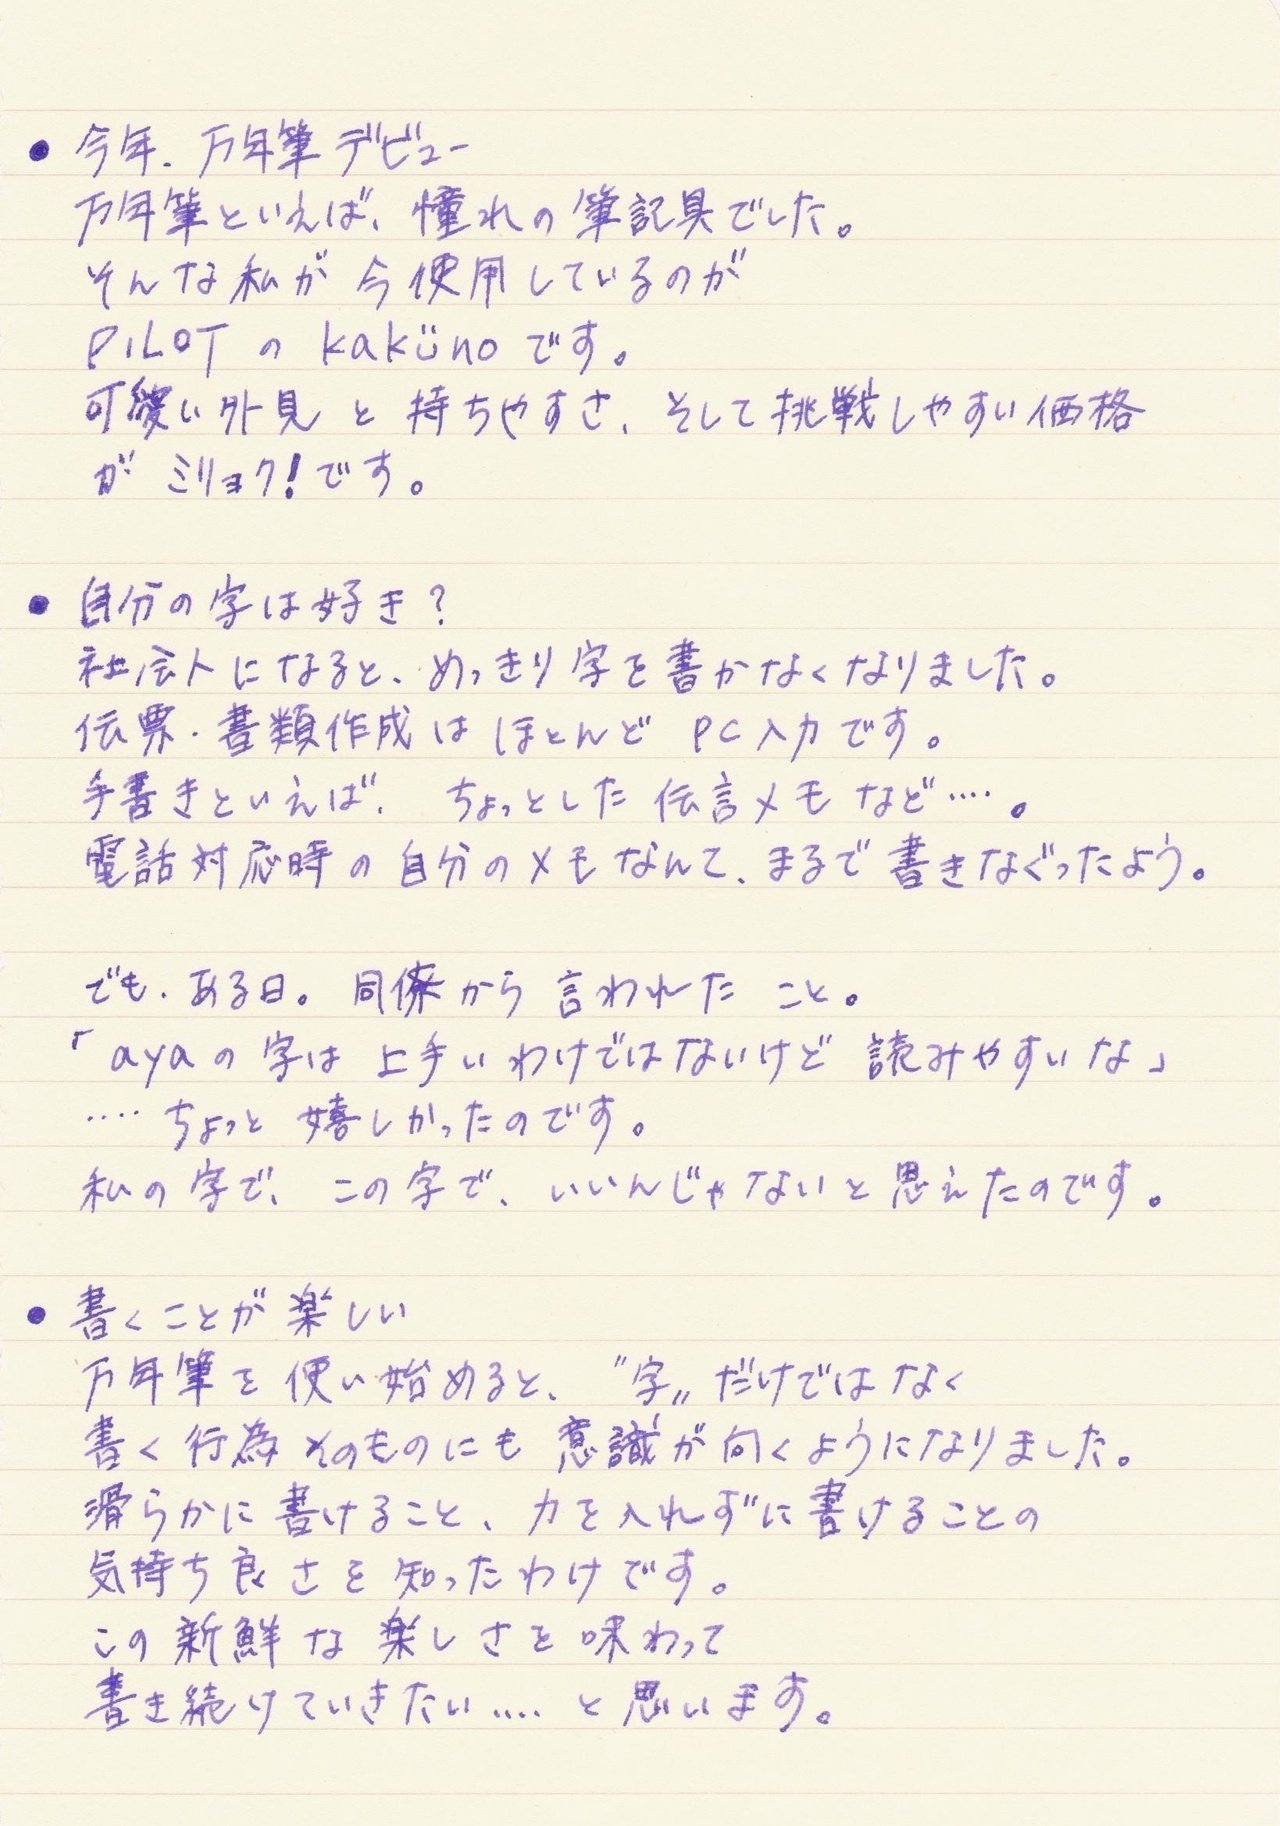 • 今年、万年筆デビュー
万年筆といえば、憧れの筆記具でした。
そんな私が今使用しているのが
PILOTのkakünoです。
可愛い外見と持ちやすさ、そして挑戦しやすい価格
がミリョク!です。
• 自分の字は好き?
社会人になると、めっきり字を書かなくなりました。
伝票・書類作成はほとんどPC入力です。
手書きといえば、ちょっとした伝言メモなど‥‥。
電話対応時の自分のメモなんて、まるで書きなぐったよう。
でも、ある日。同僚から言われたこと。
「ayaの字は上手いわけではないけど読みやすいな」
‥‥ちょっと嬉しかったのです。
私の字で、この字で、いいんじゃないと思えたのです。
• 書くことが楽しい
万年筆を使い始めると、〝字〟だけではなく
書く行為そのものにも意識が向くようになりました。
滑らかに書けること、力を入れずに書けることの
気持ち良さを知ったわけです。
この新鮮な楽しさを味わって
書き続けていきたい‥‥と思います。